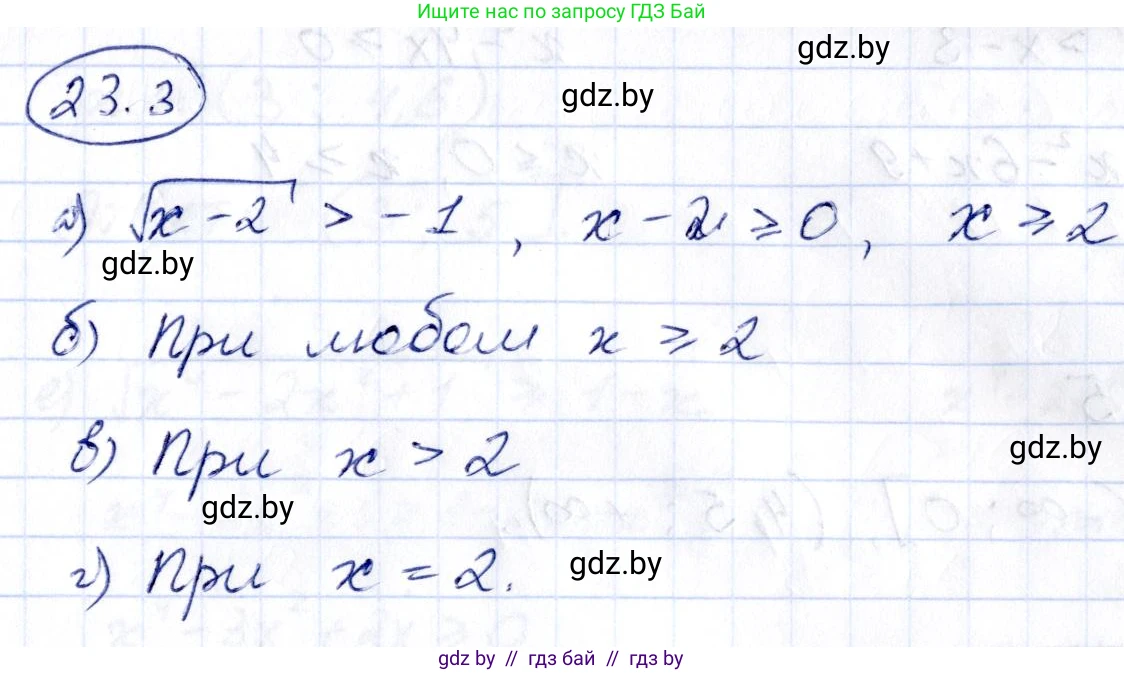 Ищите нас по запросу ГДЗ Бай
gdz.by
23.3
gdz.by
а) √x-2 > -1, x-2 ≥ 0, x ≥ 2
gdz.by
б) При любом x ≥ 2
в) При x > 2
gdz.by
gdz.by
г) При x = 2.
gdz.by
gdz by // гдз бай // гдз by